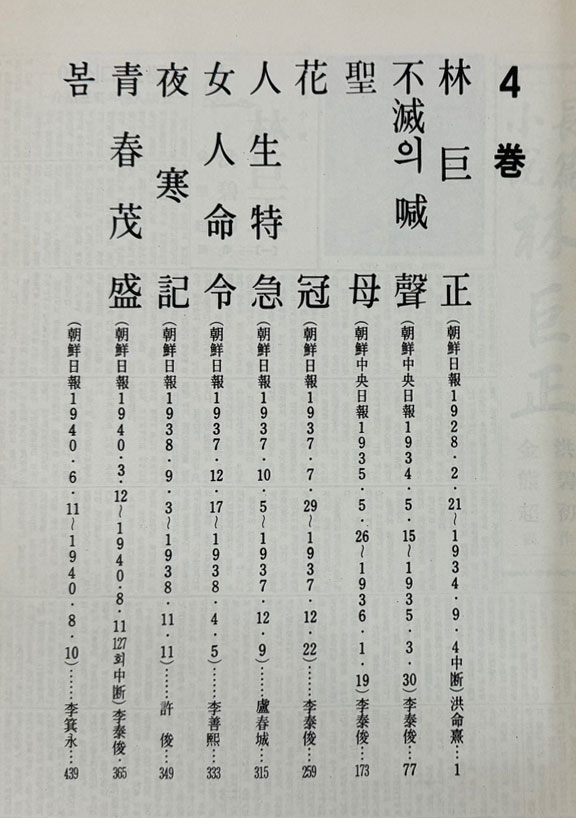 4 巻
林巨正(朝鮮日報1928·2·21~1934·9·4中断)洪命熹…1
不滅의 喊聲(朝鮮中央日報1934·5·15~1935·3·30)李泰俊…77
聖母(朝鮮中央日報1935·5·26~1936·1·19)李泰俊…173
花冠(朝鮮日報1937·7·29~1937·12·22)……李泰俊…259
人生特急(朝鮮日報1937·10·5~1937·12·9)……盧春城…315
女人命令(朝鮮日報1937·12·17~1938·4·5)……李善熙…333
夜寒記(朝鮮日報1938·9·3~1938·11·11)……許俊…349
青春茂盛(朝鮮日報1940·3·12~1940·8·11 127회中断)李泰俊·365
봄(朝鮮日報1940·6·11~1940·8·10)……李箕永…439